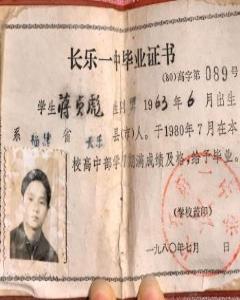 长乐一中毕业证书
(80)高字第089号
学生蒋贞彪性别 1963年6月出生
系福建省长乐县(市)人。于1980年7月在本
校高中部学习期满成绩及格,给予毕业。
(学校盖印)
一九八〇年七月 日